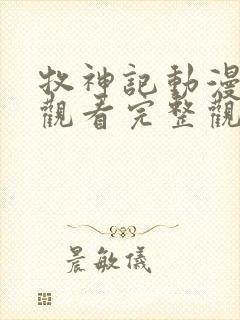 牧神記動漫
觀看完整觀
晨敏儀